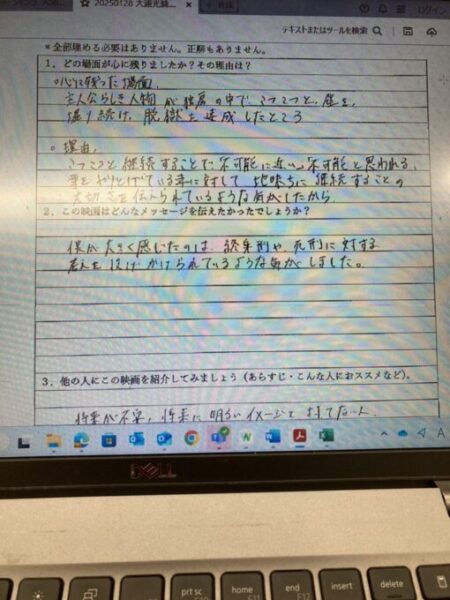 20250128 大通光綾
テキストまたはツールを検索
*全部埋める必要はありません。正解もありません。
1．どの場面が心に残りましたか？その理由は？
○心に残った場面
主人公らしき人物が独房の中で、こつこつと、壁を、
掘り続け、脱獄を達成したところ
○理由
こつこつと継続することで不可能に近い、不可能と思われる
事をやりとげている事に対して地味ちに継続することの
大切さを伝えられているような気がしたから
2．この映画はどんなメッセージを伝えたかったでしょうか？
僕が大きく感じたのは、終身刑や、死刑に対する
をなげかけられているような気がしました。
3．他の人にこの映画を紹介してみましょう（あらすじ・こんな人におススメなど）。
将来が不安、将来に明るいイメージを持てない人
DELL
prt sc
home
end
insert
delete
F10
F11
F12